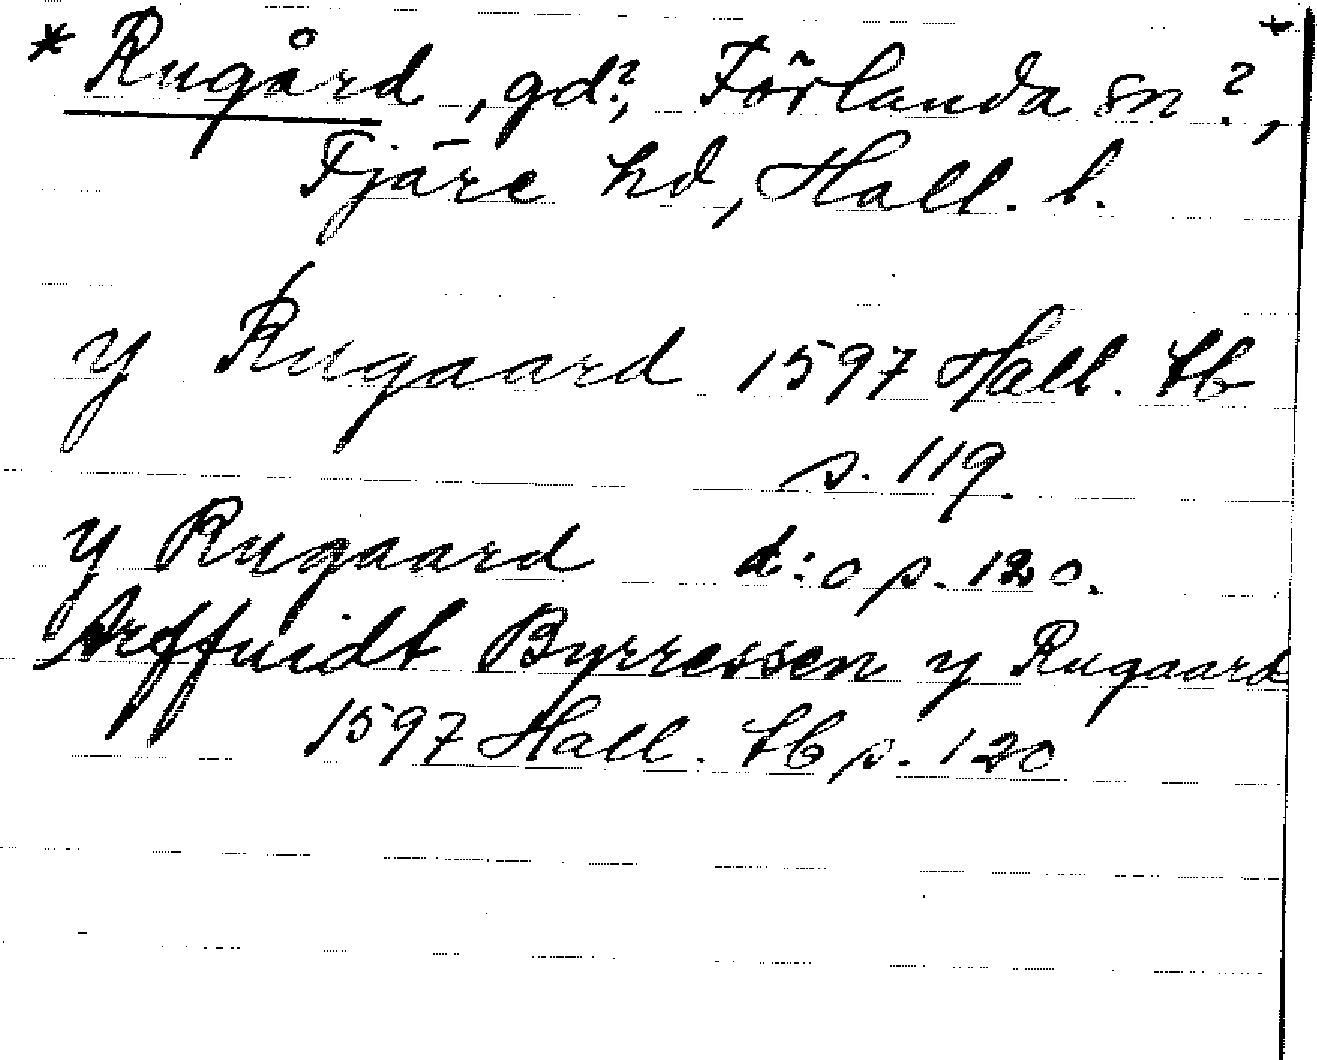 * Rugård, gd?, Förlanda sn?,
Fjäre hd, Hall. l.
y Rugaard 1597 Hall. tb
s. 119.
y Rugaard d:o s. 120.
Arffuidt Byrressen y Rugaard
1597 Hall. tb s. 120